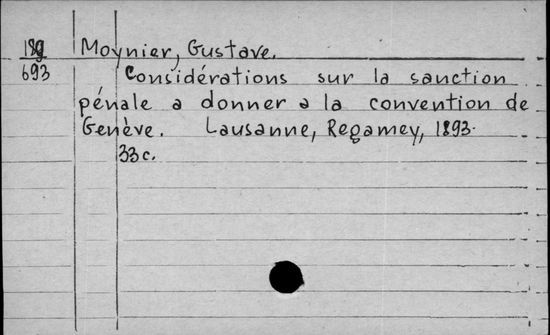 Moynier, Gustave.
693 Considérations sur la sanction
pénale a donner a la convention de
Genève. Lausanne, Regamey, 1893.
33 c.